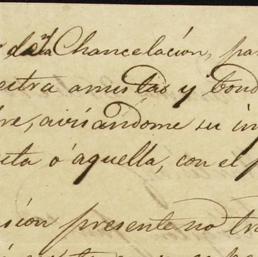 de la Chancelación, pa
estra amistas y bond
re, aviándome su im
uta ó aquella, con el p
sión presente no tra